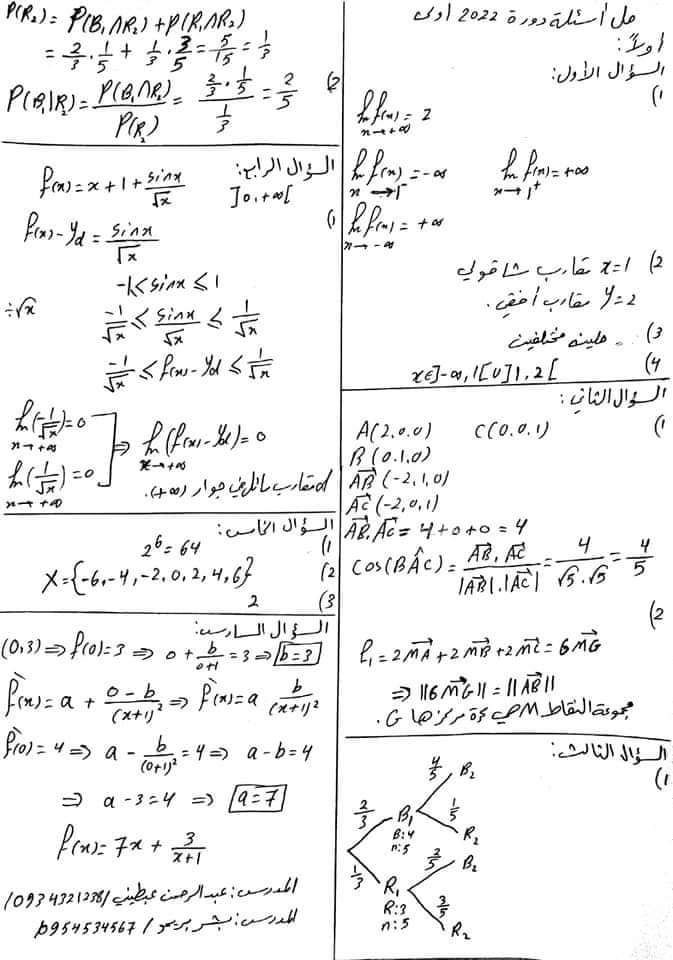 حل أسئلة دورة 2022 أولى
أولاً:
السؤال الأول:
(1
lim f(x) = 2
x→+∞
lim f(x) = -∞    lim f(x) = +∞
x→1⁻    x→1⁺
lim f(x) = +∞
x→-∞
(2 x=1 مقارب شاقولي
y=2 مقارب أفقي.
(3 مختلفين
(4 x∈]-∞,1[∪]1,2[
السؤال الثاني:
(1 A(2,0,0)    C(0,0,1)
B(0,1,0)
AB→(-2,1,0)
AC→(-2,0,1)
AB→.AC→ = 4+0+0 = 4
cos(BÂC) = AB→.AC→ / |AB→|.|AC→| = 4/√5.√5 = 4/5
(2
ℓ₁ = 2MA→ + 2MB→ + 2MC→ = 6MG→
⇒ ||6MG→|| = ||AB→||
مجموعة النقاط M هي كرة مركزها G.
السؤال الثالث:
(1
4/5 B₂
2/3 B₁ 1/5
B:4 R₂
n:5 2/5 B₂
1/3 R₁
R:3 3/5
n:5 R₂
P(R₂) = P(B₁∩R₂) + P(R₁∩R₂)
= 2/3 . 1/5 + 1/3 . 3/5 = 5/15 = 1/3
(2 P(B₁|R₂) = P(B₁∩R₂)/P(R₂) = (2/3 . 1/5)/(1/3) = 2/5
السؤال الرابع:
f(x) = x + 1 + sinx/√x    ]0,+∞[
(1 f(x) - y_d = sinx/√x
-1 ≤ sinx ≤ 1
÷√x    -1/√x ≤ sinx/√x ≤ 1/√x
-1/√x ≤ f(x) - y_d ≤ 1/√x
lim (-1/√x) = 0
x→+∞
⇒ lim (f(x) - y_d) = 0
x→+∞
lim (1/√x) = 0
x→+∞
d مقارب مائل في جوار (+∞).
السؤال الخامس:
(1 2⁶ = 64
(2 X = {-6,-4,-2,0,2,4,6}
(3 2
السؤال السادس:
(0,3) ⇒ f(0)=3 ⇒ 0 + b/0+1 = 3 ⇒ b=3
f`(x) = a + 0-b/(x+1)² ⇒ f`(x) = a b/(x+1)²
f`(0) = 4 ⇒ a - b/(0+1)² = 4 ⇒ a-b=4
⇒ a-3=4 ⇒ a=7
f(x) = 7x + 3/x+1
المدرس: عبدالرحمن /0934321238/
المدرس: / 0954534567